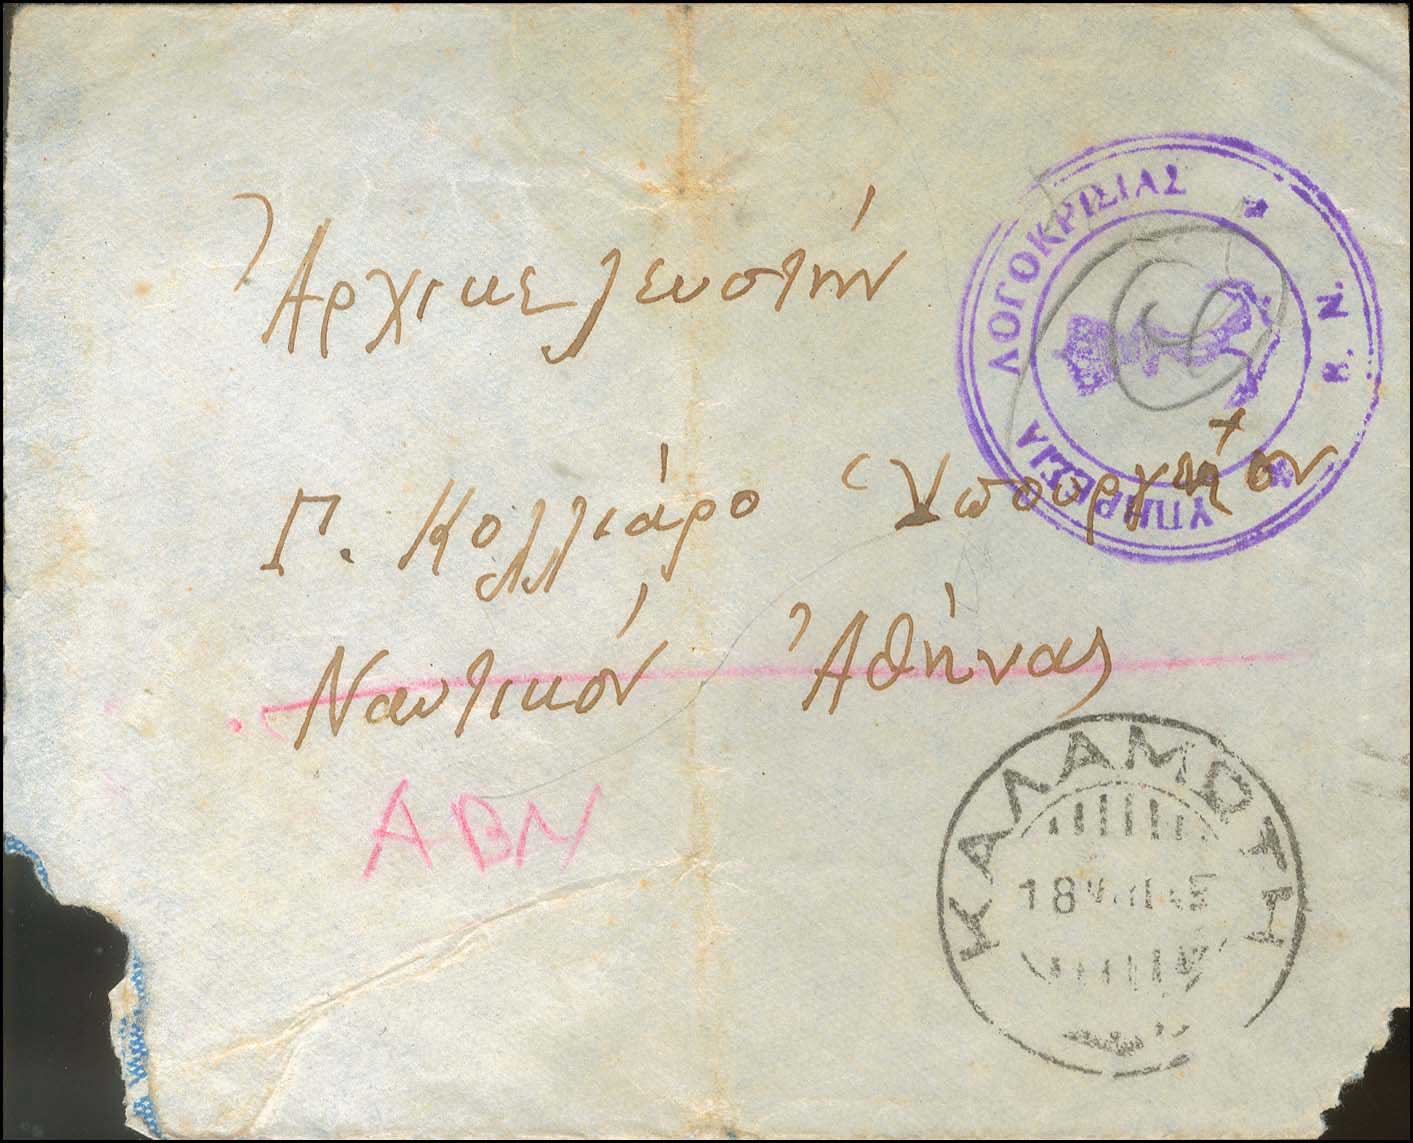 Ἀρχικελευστήν
Γ. Κολλιάρο Ὑπουργεῖον
Ναυτικόν Ἀθήνας
ΑΒΝ
ΥΠΗΡΕΣΙΑ ΛΟΓΟΚΡΙΣΙΑΣ
Β. Ν.
ΚΑΛΑΜΩΤΗ
18